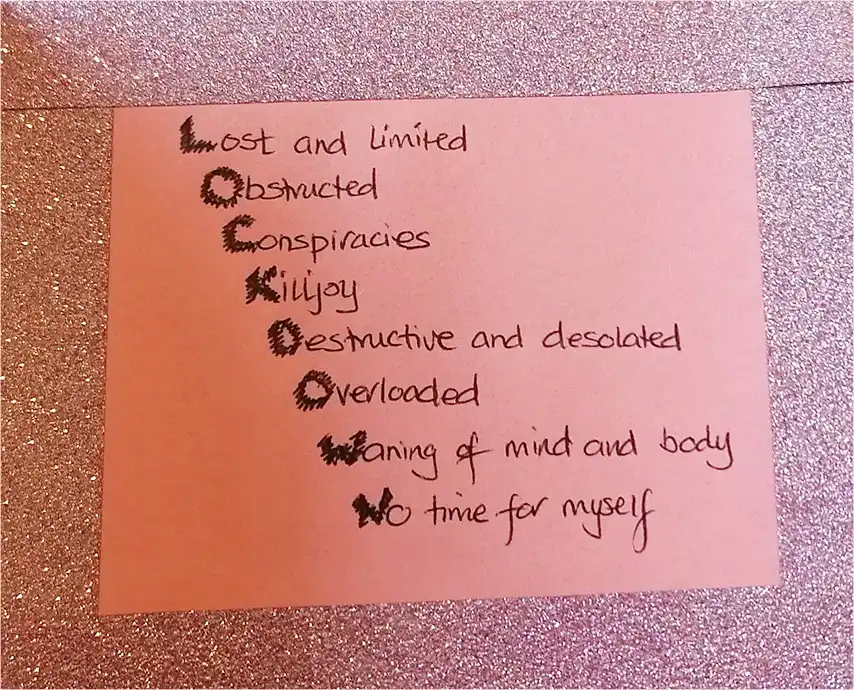 Lost and limited
Obstructed
Conspiracies
Killjoy
Destructive and desolated
Overloaded
Waning of mind and body
No time for myself